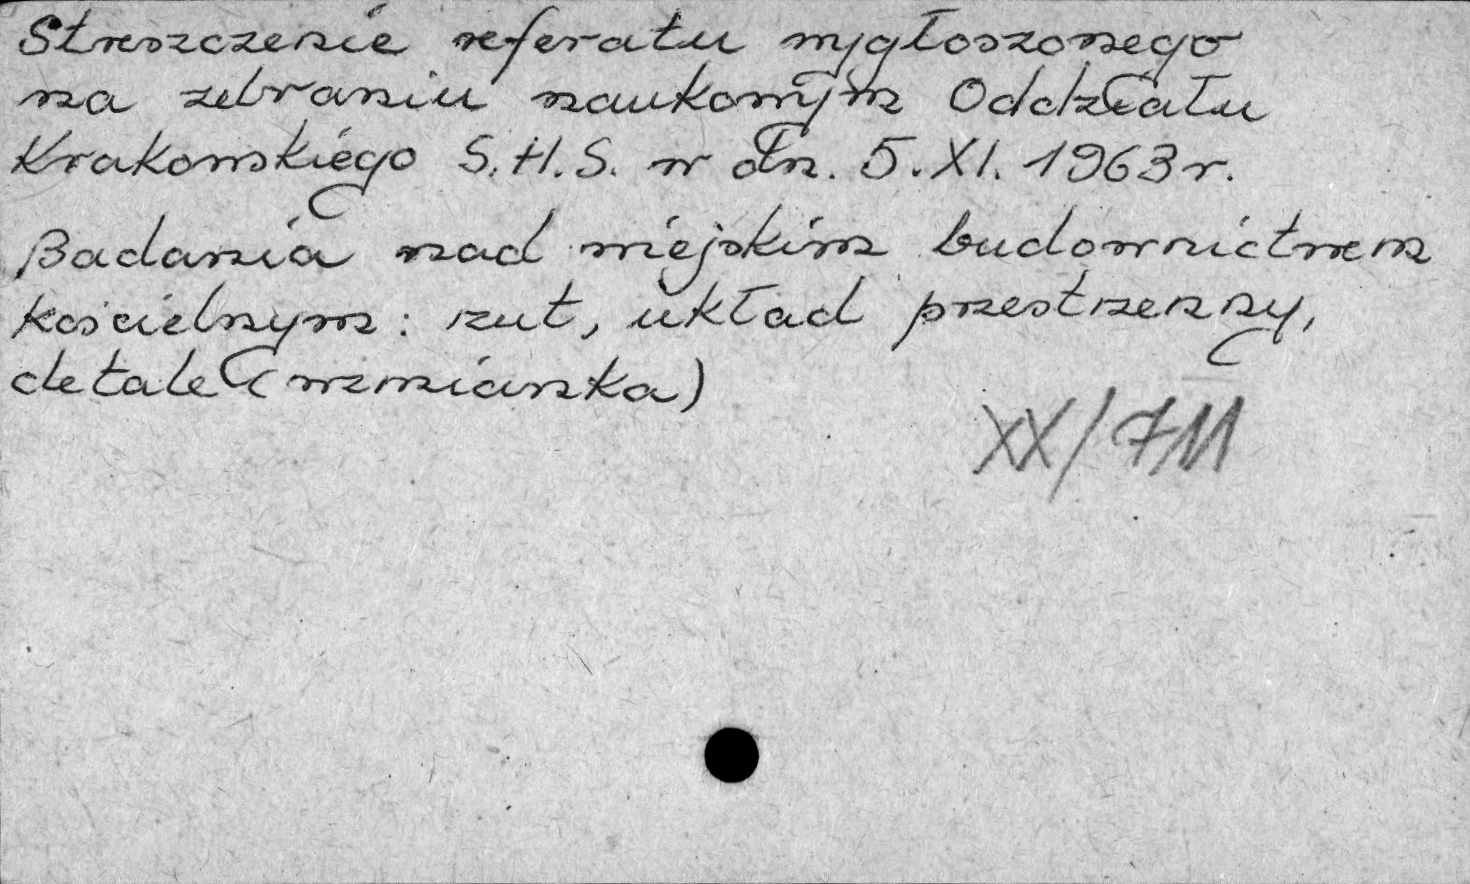 Streszczenie referatu wygłoszonego
na zebraniu naukowym Oddziału
Krakowskiego S.H.S. w dn. 5.XI.1963r.
Badania nad miejskim budownictwem
kościelnym: rzut, układ przestrzenny,
detale (wzmianka)
XX/711